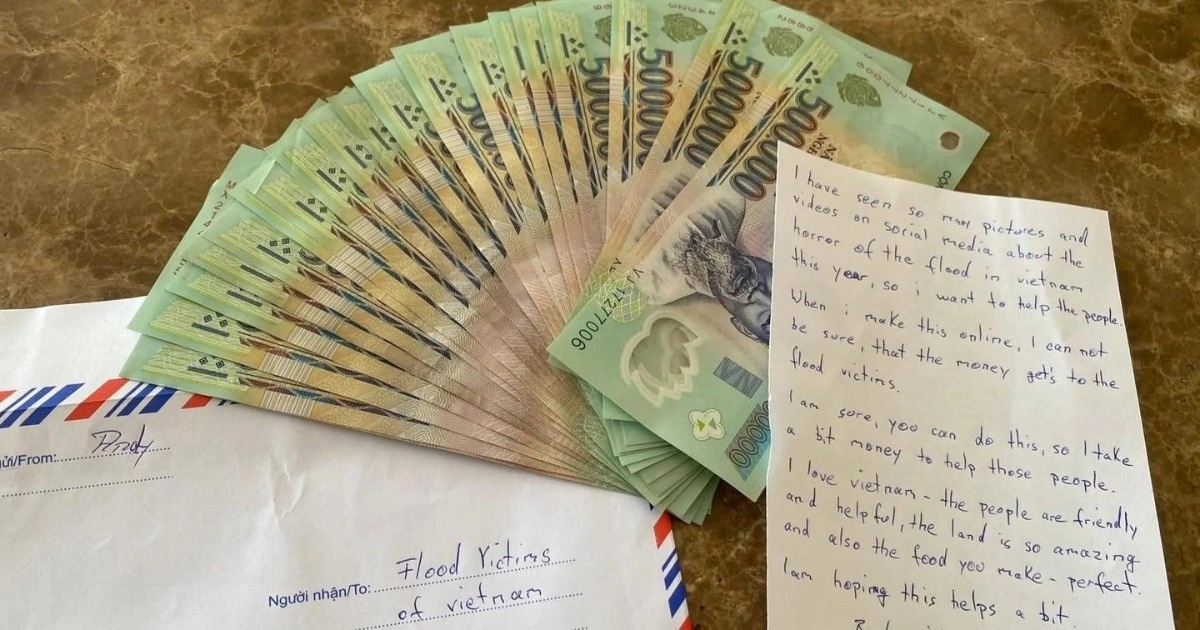 500000
500000
500000
500000
VJ17277006
I have seen so many pictures and
videos on social media about the
horror of the flood in vietnam
this year, so i want to help the people.
When i make this online, I can not
be sure, that the money get's to the
flood victims.
I am sore, you can do this, so I take
a bit money to help those people.
I love vietnam - the people are friendly
and helpful, the land is so amazing
and also the food you make - perfect.
I am hoping this helps a bit.
ửi/From:
Người nhận/To: Flood Victims
of vietnam